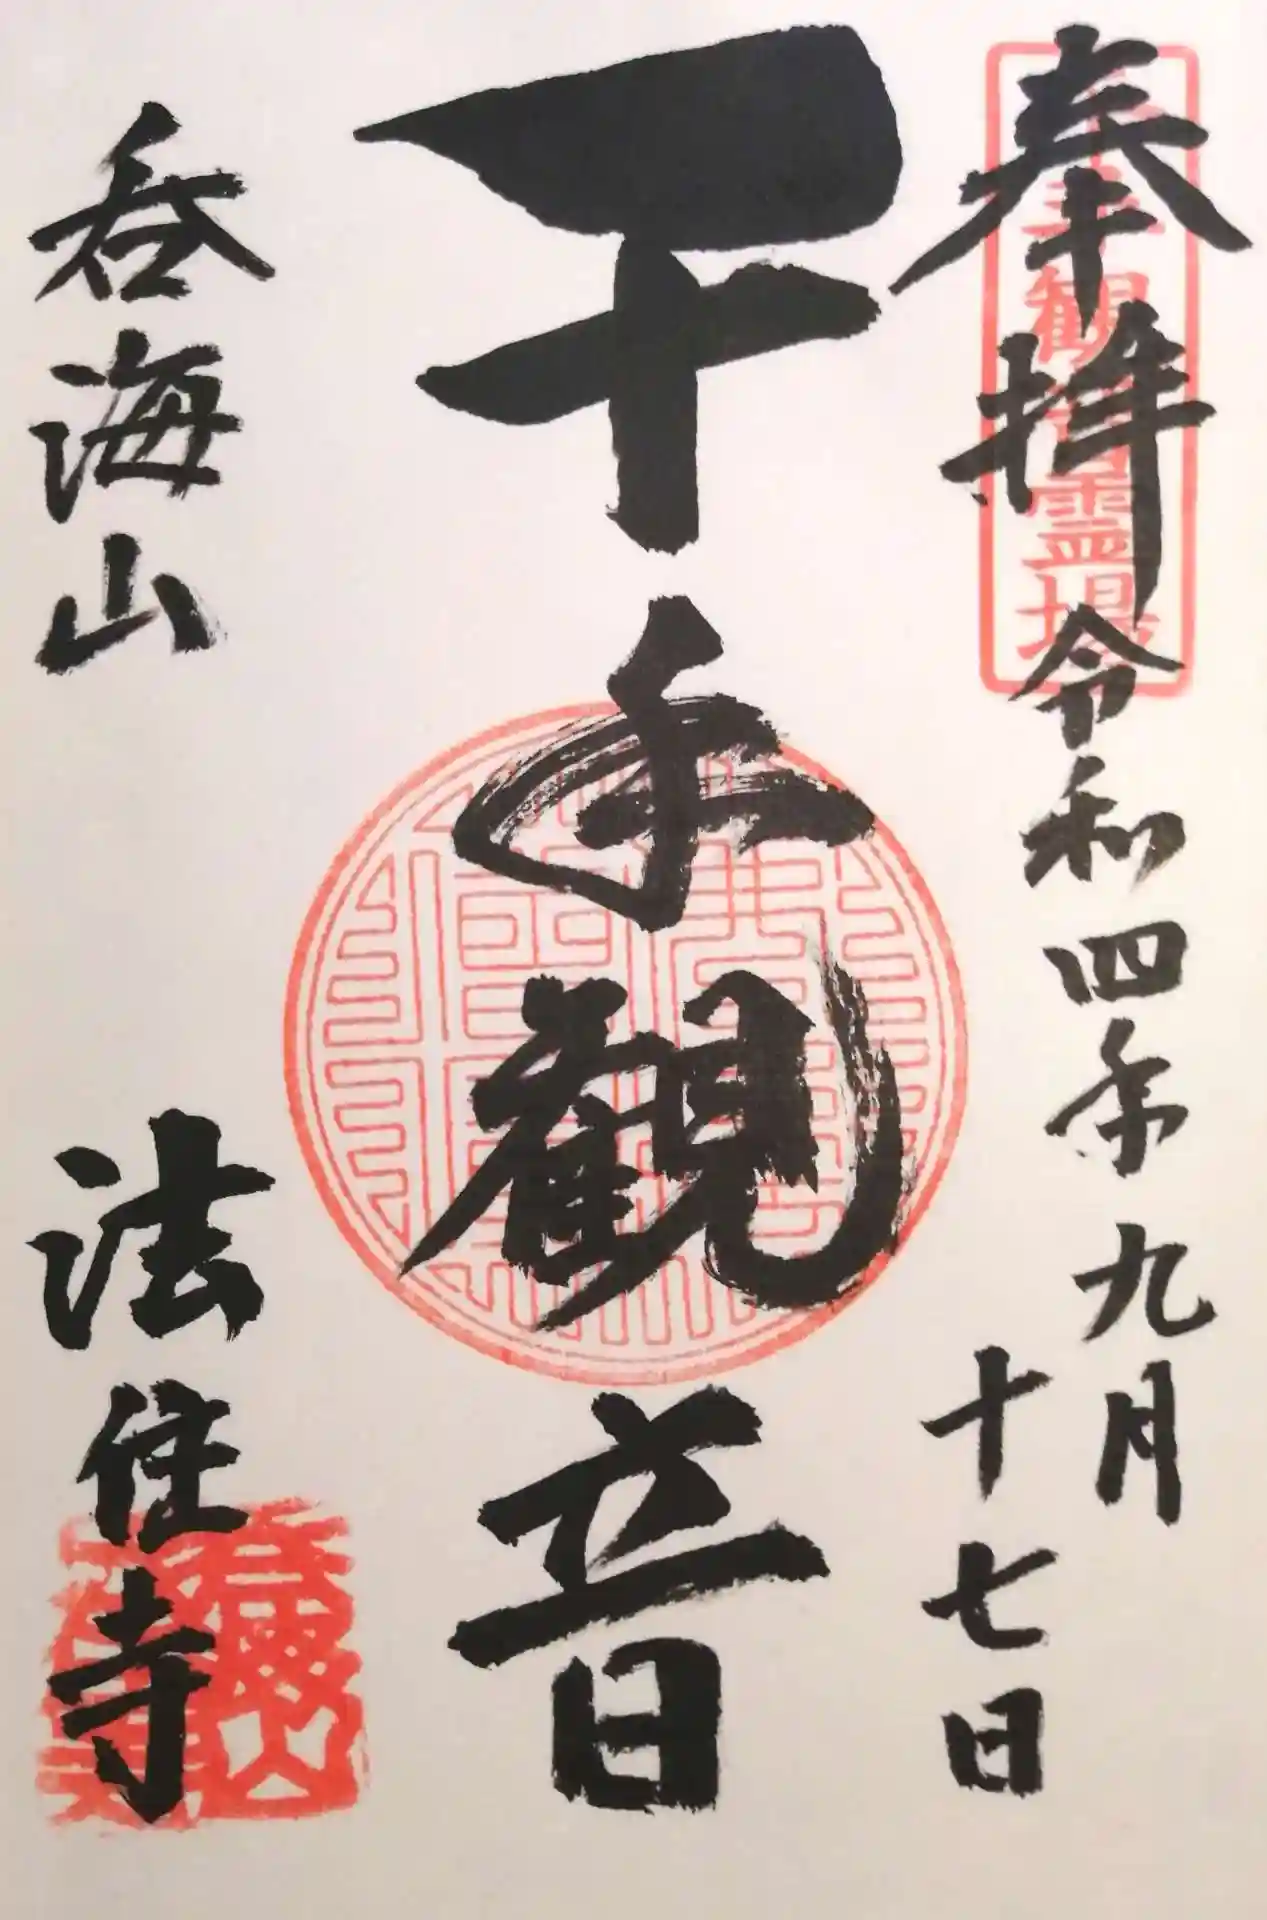 奉拝 令和四年九月
十七日
千手観音霊場
千手観音
呑海山 法住寺